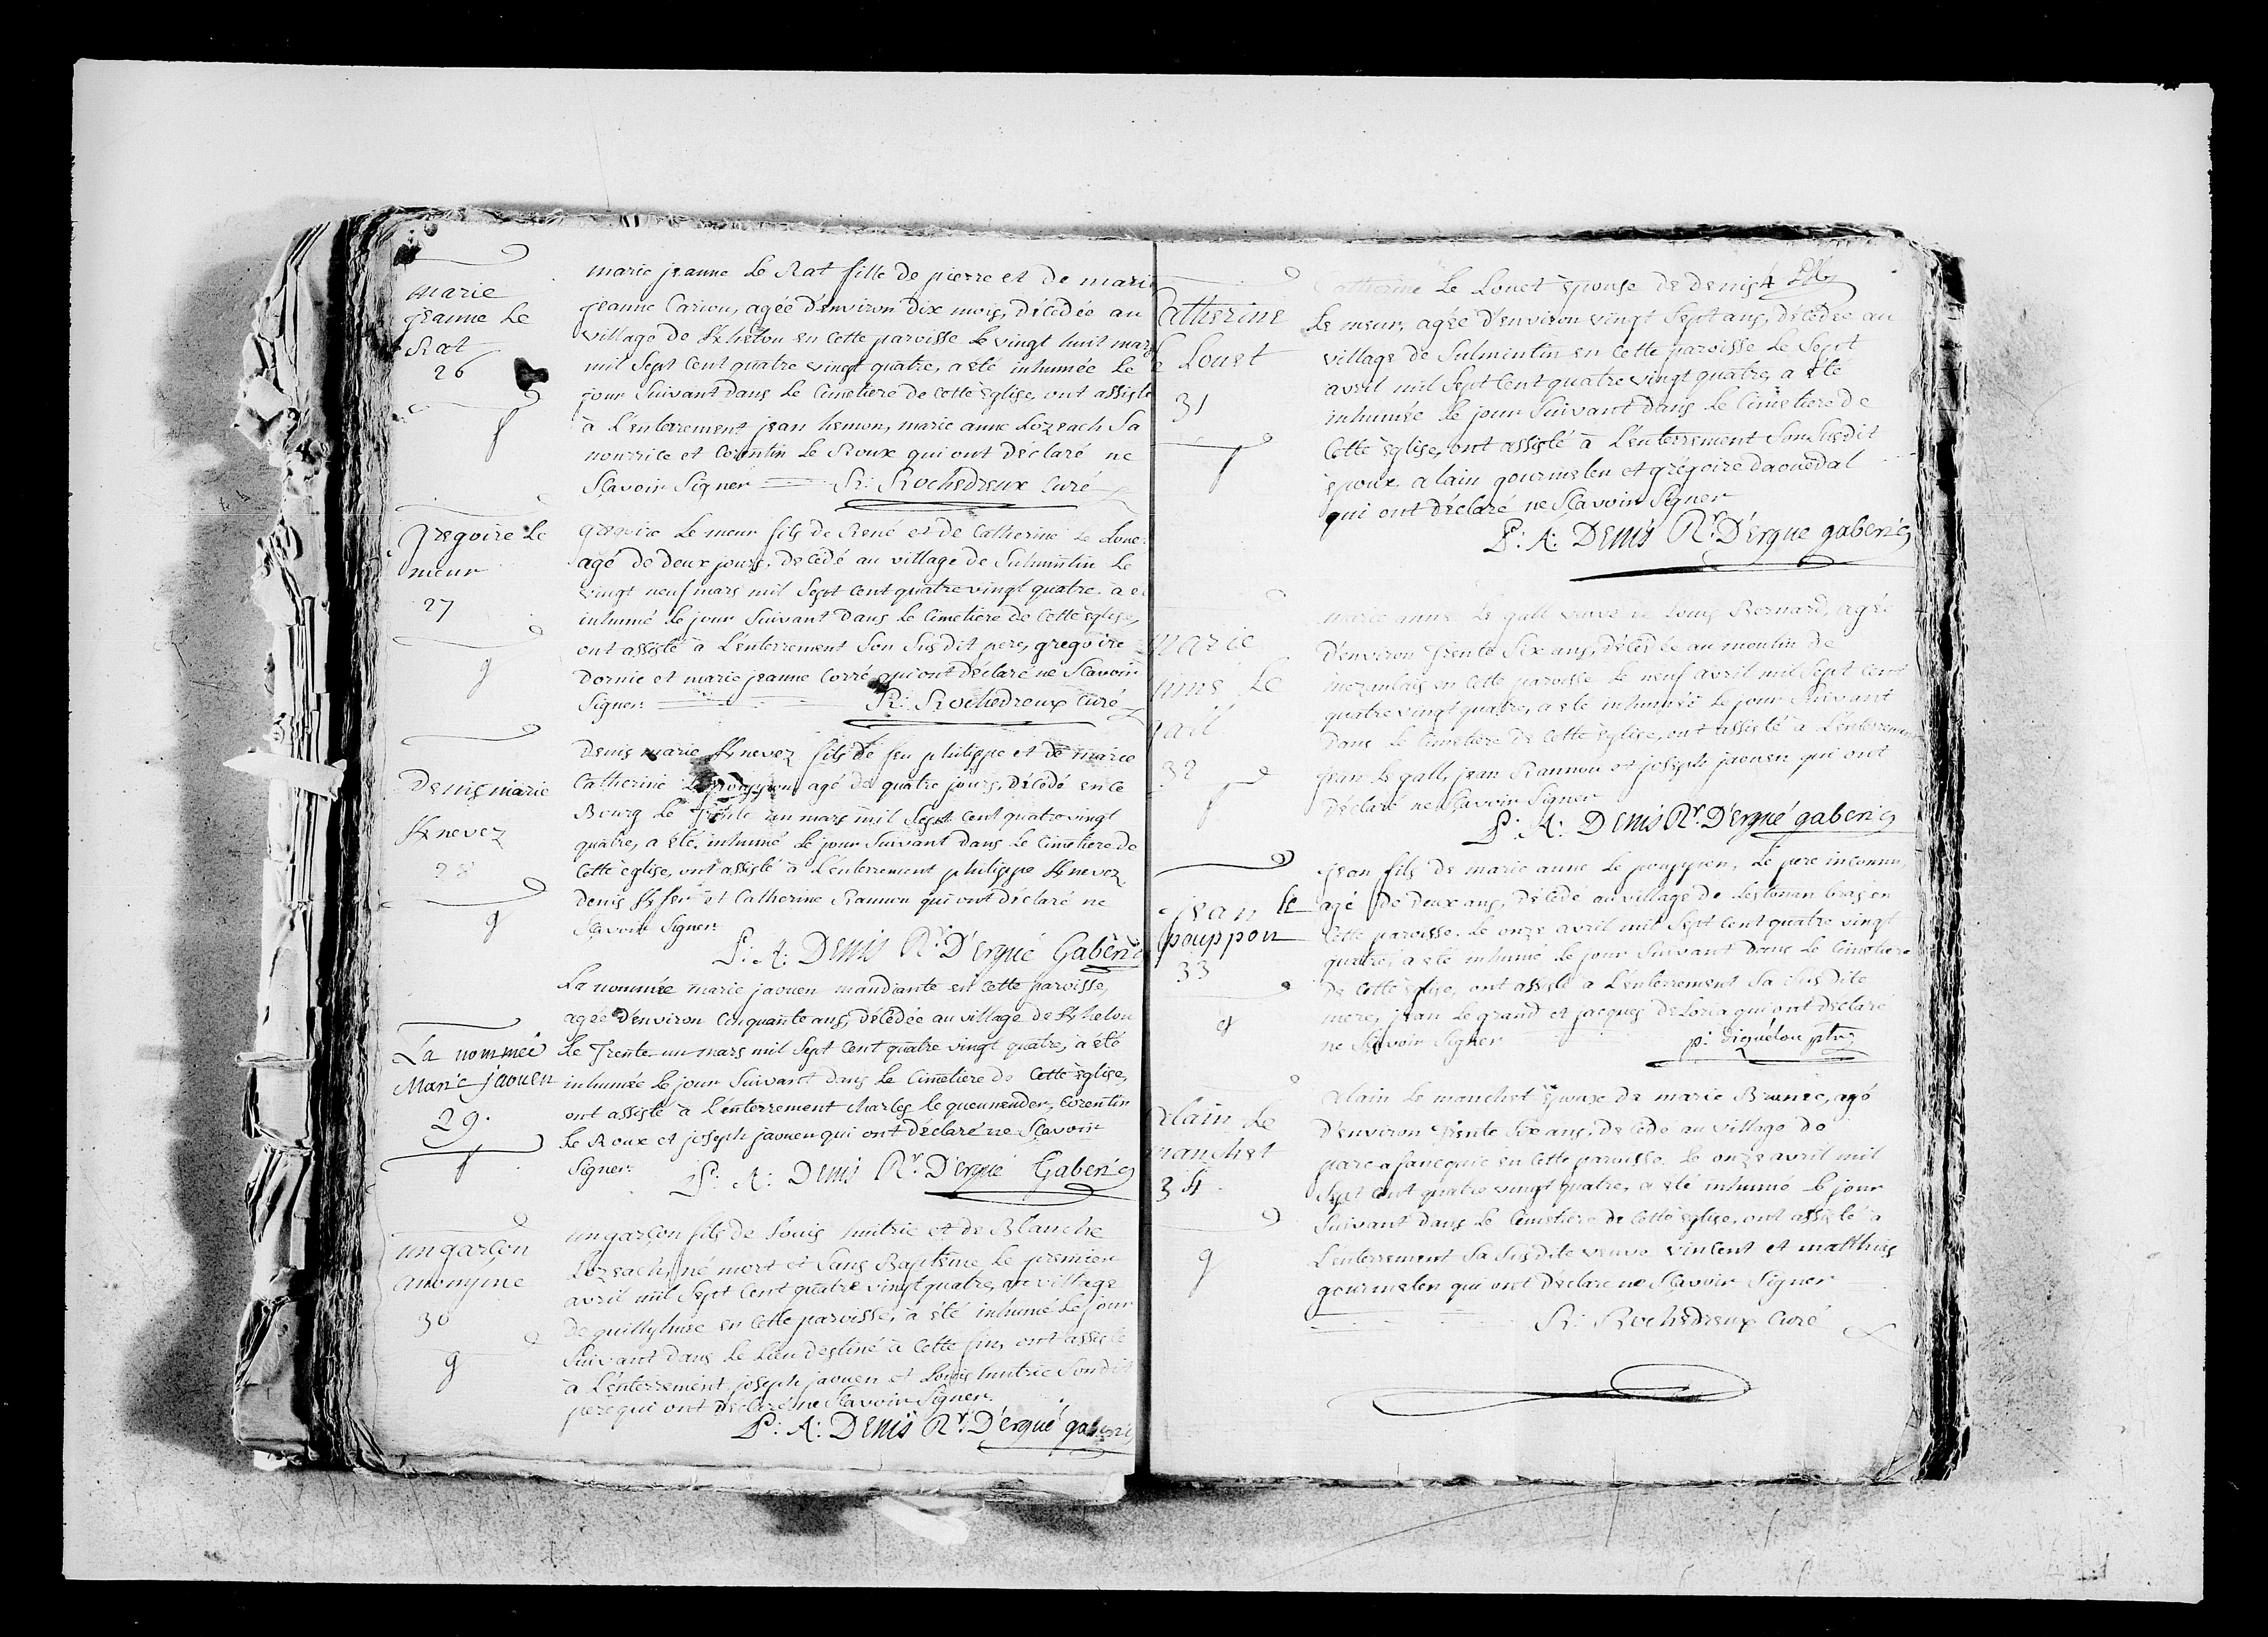 marie
jeanne Le
Rat
26
marie jeanne Le Rat fille de pierre et de marie
jeanne Cariou, agée d'environ dix mois, décédée au
village de Khelou en cette paroisse le vingt huit mars
mil Sept Cent quatre vingt quatre, a été inhumée Le
jour Suivant dans Le Cimetiere de cette église, ont assisté
à L'enterrement jean hemon, marie anne Lozeach Sa
nourrice et Corentin Le Roux qui ont déclaré ne
Sçavoir Signer R: Rochedreux Curé
gregoire Le
meur
27
gregoire Le meur fils de René et de Catherine Le Loue
agé de deux jours, decédé au village de Sulmintin Le
vingt neuf mars mil Sept Cent quatre vingt quatre, a é
inhumé le jour Suivant dans Le Cimetiere de Cette église,
ont assisté à L'enterrement Son Susdit pere, gregoire
Dornic et marie jeanne Corré qui ont déclaré ne Scavoir
Signer R: Rochedreux Curé
Denis marie
Knevez
28
Denis marie Knevez fils de feu philippe et de marie
Catherine agé de quatre jours, décédé en ce
Bourg Le trente un mars mil Sept Cent quatre vingt
quatre, a été inhumé le jour Suivant dans Le Cimetiere de
Cette église, ont assisté à L'enterrement philippe Knevez
Denis et Catherine Rannou qui ont déclaré ne
Sçavoir Signer
P: A: Denis Rr. D'ergué Gaberic
La nommeé
Marie jaouen
29.
La nommée marie jaouen mandiante en Cette paroisse,
agée d'environ Cinquante ans, décédée au village de Khelou
Le Trente un mars mil Sept Cent quatre vingt quatre, a été
inhumée Le jour Suivant dans Le Cimetiere de Cette église,
ont assisté à L'enterrement charles le queunender, Corentin
Le Roux et joseph jaouen qui ont déclaré ne Sçavoir
Signer P: A: Denis Rr. D'ergué Gaberic
un garçon
anonyme
30
un garçon fils de Louis huitric et de Blanche
Lozeach, né mort et Sans Baptême le premier
avril mil Sept Cent quatre vingt quatre, au village
de quillyhuec en Cette paroisse, a été inhumé Le jour
Suivant dans Le Lieu destiné à Cette fin, ont assisté
à L'enterrement joseph jaouen et Louis huitric Son dit
pere qui ont déclaré ne Sçavoir Signer
P: A: Denis Rr. D'ergué gaberic
Catherine
Le Louet
31
Catherine Le Louet épouse de Denis
Le meur, agée d'environ vingt Sept ans, décédée au
village de Sulmintin en Cette paroisse Le Sept
avril mil Sept Cent quatre vingt quatre, a été
inhumée Le jour Suivant dans Le Cimetiere de
Cette église, ont assisté à L'enterrement Son Susdit
époux alain gourmelen et grégoire daouedal
qui ont déclaré ne Scavoir Signer
P: A: Denis Rr. D'ergue gaberic
marie
anne Le
gall
32
marie anne Le gall veuve de Louis Bernard, agée
d'environ trente Six ans, décédée au moulin de
en Cette paroisse Le neuf avril mil Sept Cent
quatre vingt quatre, a été inhumée Le jour Suivant
dans Le Cimetiere de Cette église, ont assisté à L'enterrement
jean Le gall, jean Rannou et joseph jaouen qui ont
déclaré ne Scavoir Signer
P: A: Denis Rr. D'ergué gaberic
jean le
pouppon
33
jean fils de marie anne Le pouppon, Le pere inconnu,
agé de deux ans, décédé au village de Lestonan bras en
Cette paroisse Le onze avril mil Sept Cent quatre vingt
quatre, a été inhumé Le jour Suivant dans Le Cimetiere
de Cette église, ont assisté à L'enterrement Sa Susdite
mere, jean Le grand et jacques qui ont déclaré
ne Sçavoir Signer p: ptre
alain Le
manchet
34
alain Le manchet époux de marie agé
d'environ trente Six ans, decédé au village de
en Cette paroisse Le onze avril mil
Sept Cent quatre vingt quatre, a été inhumé Le jour
Suivant dans Le Cimetiere de Cette église, ont assisté a
L'enterrement Sa Susdite veuve vincent et matthias
gourmelen qui ont déclaré ne Sçavoir Signer
R: Rochedreux Curé